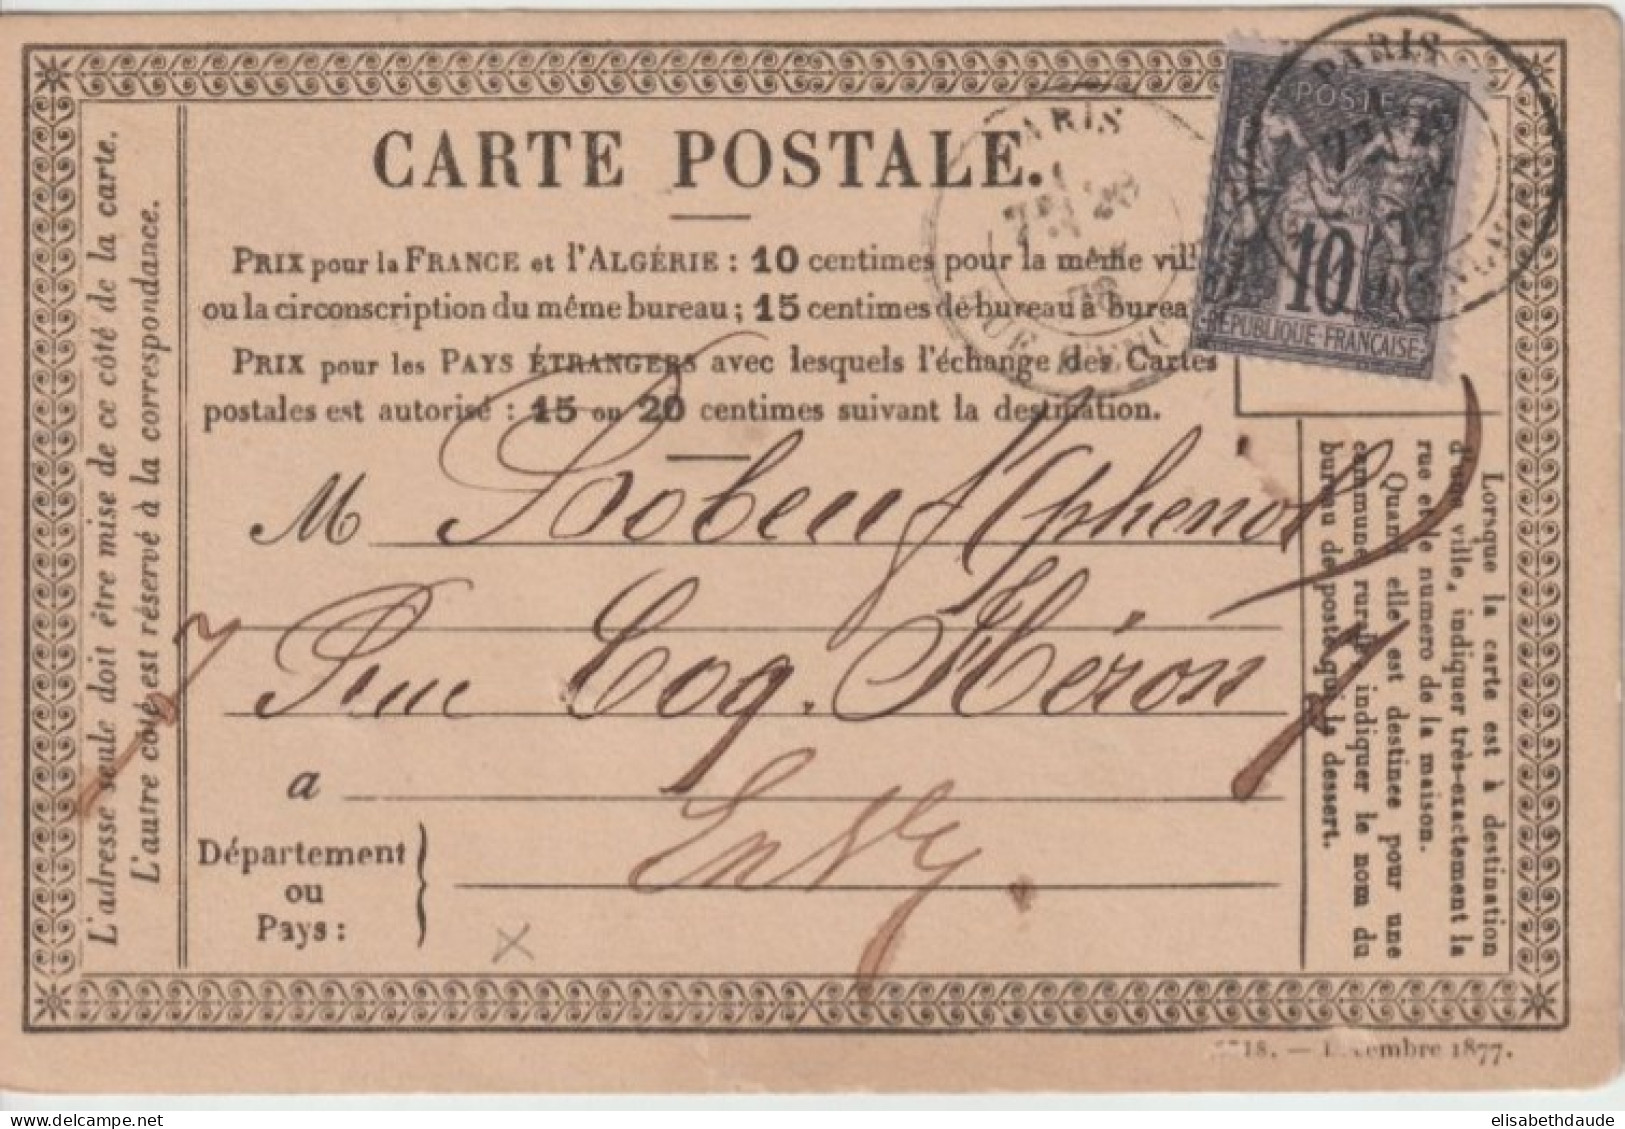 CARTE POSTALE.
PRIX pour la FRANCE et l'ALGÉRIE : 10 centimes pour la même vill
ou la circonscription du même bureau ; 15 centimes de bureau à burea
PRIX pour les PAYS ÉTRANGERS avec lesquels l'échange des Cartes
postales est autorisé : 15 ou 20 centimes suivant la destination.
M
Rue Coq. Héron 7
a
En Ve
Département
ou
Pays :
L'adresse seule doit être mise de ce côté de la carte.
L'autre côté est réservé à la correspondance.
Lorsque la carte est à destination
d'une ville, indiquer très-exactement la
rue et le numero de la maison.
Quand elle est destinee pour une
commune rurale, indiquer le nom du
bureau de poste qui la dessert.
POSTE
10
REPUBLIQUE-FRANÇAISE
PARIS
78
PARIS
78
18. — Décembre 1877.
elisabethdaude